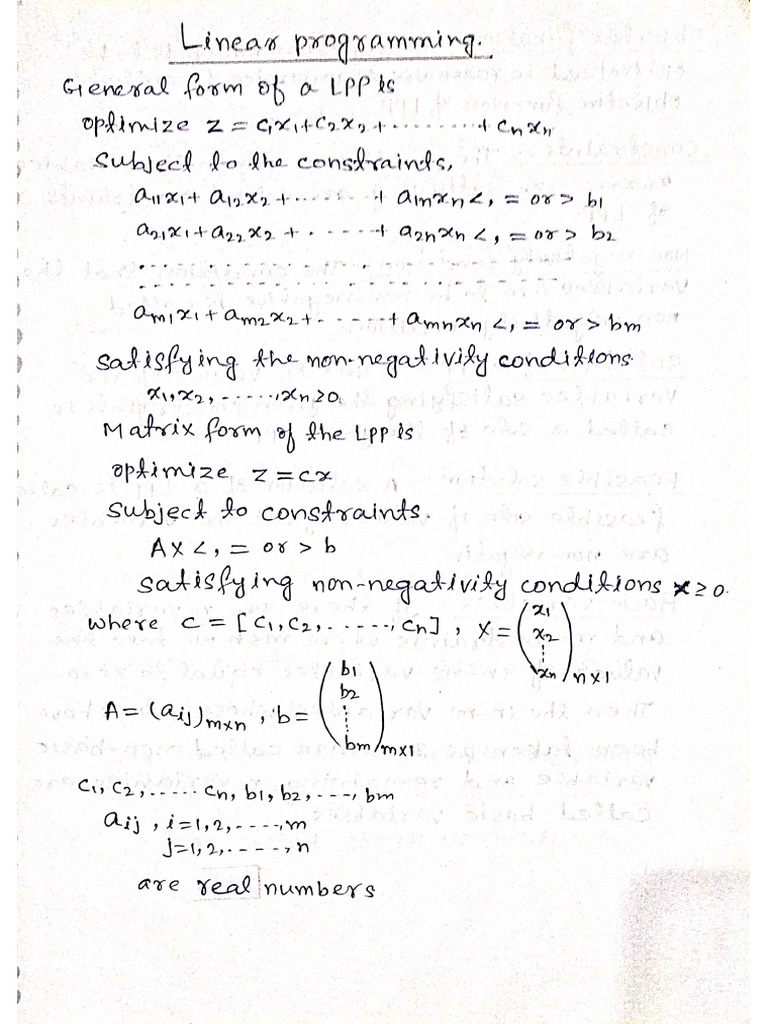 Linear programming.
General form of a LPP is
optimize z = c1x1+c2x2+.........+cnxn
subject to the constraints,
a11x1+a12x2+......+a1nxn<,= or> b1
a21x1+a22x2+......+a2nxn<,= or> b2
am1x1+am2x2+......+amnxn<,= or> bm
satisfying the non-negativity conditions
x1,x2,......,xn≥0.
Matrix form of the LPP is
optimize z = cx
subject to constraints.
AX <,= or > b
satisfying non-negativity conditions x≥0.
where c = [c1,c2,.....,cn], X = (x1 x2 ⋮ xn) n×1
A = (aij)m×n, b = (b1 b2 ⋮ bm) m×1
c1,c2,..... cn, b1,b2,...,bm
aij, i=1,2,....,m
j=1,2,.....,n
are real numbers